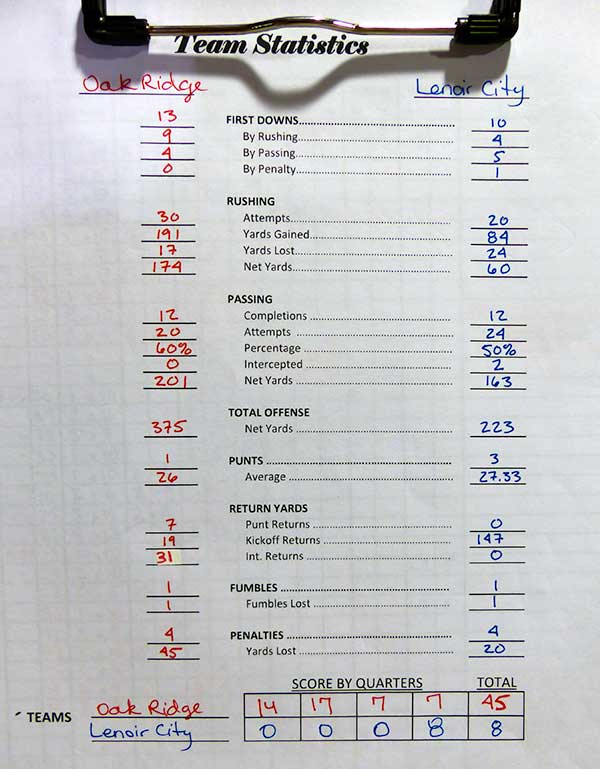 Team Statistics
Oak Ridge Lenoir City
13 FIRST DOWNS 10
9 By Rushing 4
4 By Passing 5
0 By Penalty 1
RUSHING
30 Attempts 20
191 Yards Gained 84
17 Yards Lost 24
174 Net Yards 60
PASSING
12 Completions 12
20 Attempts 24
60% Percentage 50%
0 Intercepted 2
201 Net Yards 163
TOTAL OFFENSE
375 Net Yards 223
1 PUNTS 3
26 Average 27.33
RETURN YARDS
7 Punt Returns 0
19 Kickoff Returns 147
31 Int. Returns 0
1 FUMBLES 1
1 Fumbles Lost 1
4 PENALTIES 4
45 Yards Lost 20
SCORE BY QUARTERS TOTAL
TEAMS Oak Ridge 14 17 7 7 45
Lenoir City 0 0 0 8 8